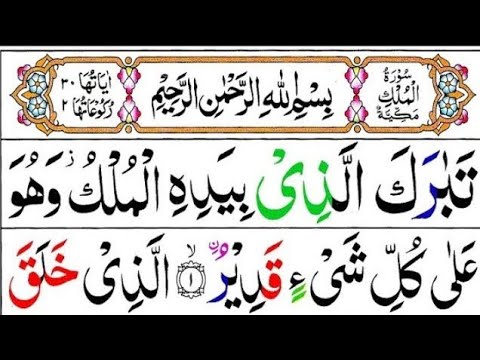 سُوْرَةُ
الْمُلْكِ
مَكِّيَّةٌ
بِسْمِ اللّٰهِ الرَّحْمٰنِ الرَّحِيْمِ
اٰيَاتُهَا ٣٠
رُكُوْعَاتُهَا ٢
تَبٰرَكَ الَّذِىْ بِيَدِهِ الْمُلْكُ ز وَهُوَ
عَلٰى كُلِّ شَىْءٍ قَدِيْرُ ۙ﴿١﴾ الَّذِىْ خَلَقَ